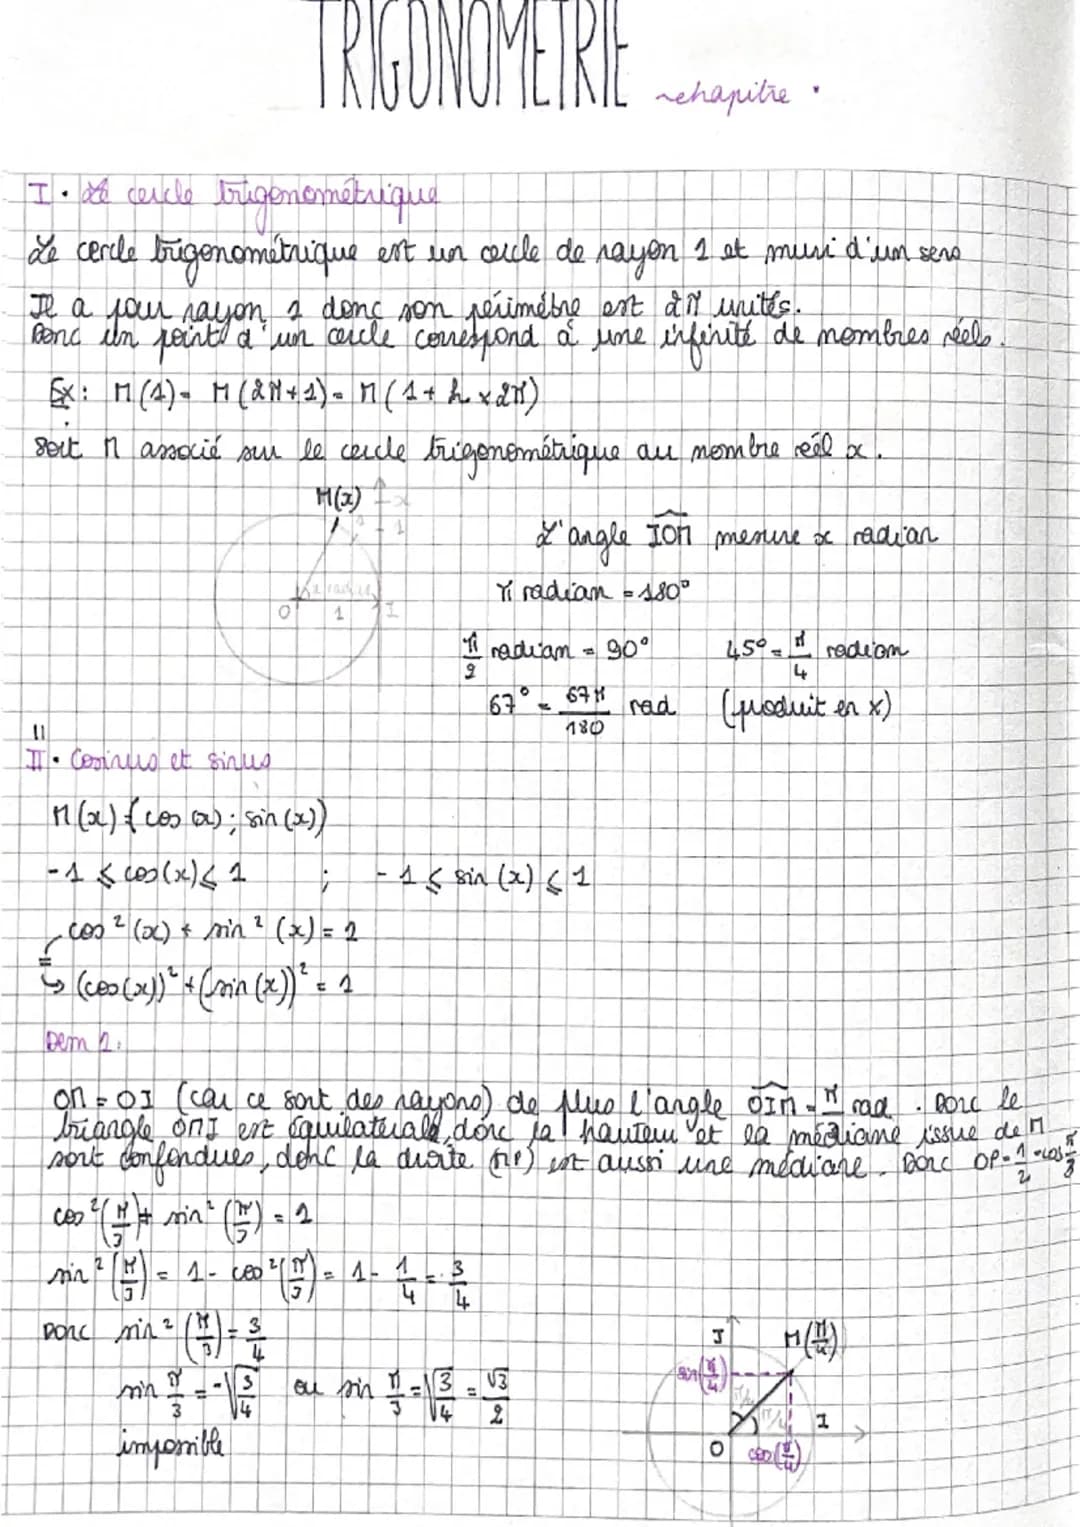 TRIGONOMETRIE ~chapitre .
I. Le cercle trigonométrique
Le cercle trigonométrique est un cercle de rayon 1 et muni d'un sens
Il a pour rayon 1 donc son périmètre est 2π unités.
Donc un point d'un cercle correspond à une infinité de nombres réels.
Ex: M(1) = M(2π+1) = M(1+k×2π)
Soit M associé sur le cercle trigonométrique au nombre réel x.
M(x)
O 1 I
L'angle IOM mesure x radian
π radian = 180°
π/2 radian = 90° 45° = π/4 radian
67° = 67π/180 rad (produit en x)
II. Cosinus et sinus
M(x) (cos(x); sin(x))
-1 ⩽ cos(x) ⩽ 1 ; -1 ⩽ sin(x) ⩽ 1
cos²(x) + sin²(x) = 1
= ↳ (cos(x))² + (sin(x))² = 1
Dem 1:
OM = OI (car ce sont des rayons) de plus l'angle OIM = π/3 rad. Donc le
triangle OMI est équilatéral, donc la hauteur et la médiane issue de M
sont confondues, donc la droite (MP) est aussi une médiane. Donc OP = 1/2 = cos π/3
cos²(π/3) + sin²(π/3) = 1
sin²(π/3) = 1 - cos²(π/3) = 1 - 1/4 = 3/4
Donc sin²(π/3) = 3/4
sin π/3 = -√3/4 ou sin π/3 = √3/4 = √3/2
impossible
J M(π/4)
sin(π/4)
π/4
π/4 I
O cos(π/4)